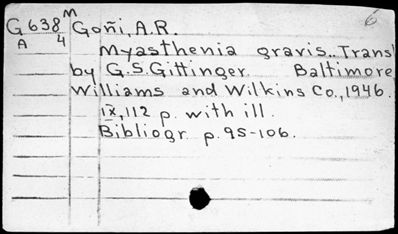 6
G638 M Goñi, A.R.
A 4 Myasthenia gravis.. Transl
by G.S.Gittinger. Baltimore
Williams and Wilkins Co., 1946.
ix, 112 p. with ill.
Bibliogr p. 95-106.